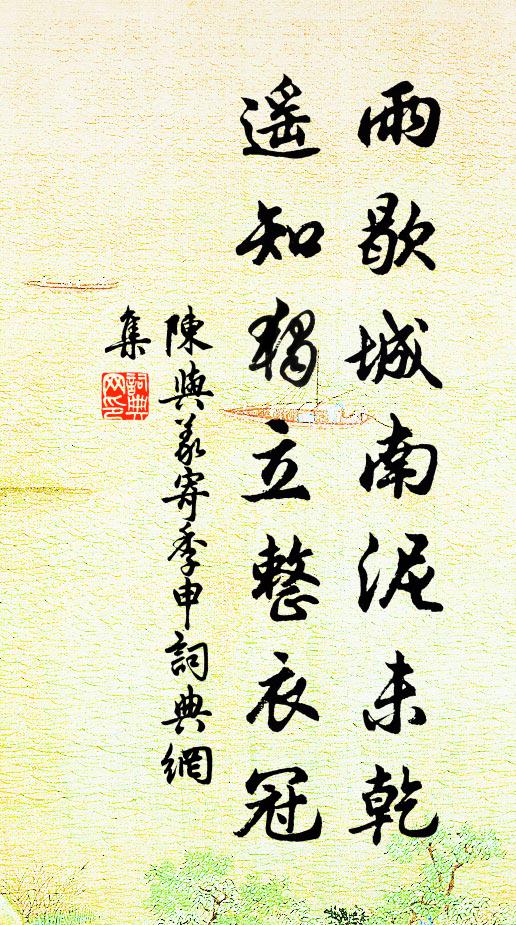 雨歇城南泥未乾
遥知獨立整衣冠
陳與義寄季申詞典網
集
詞典
网印